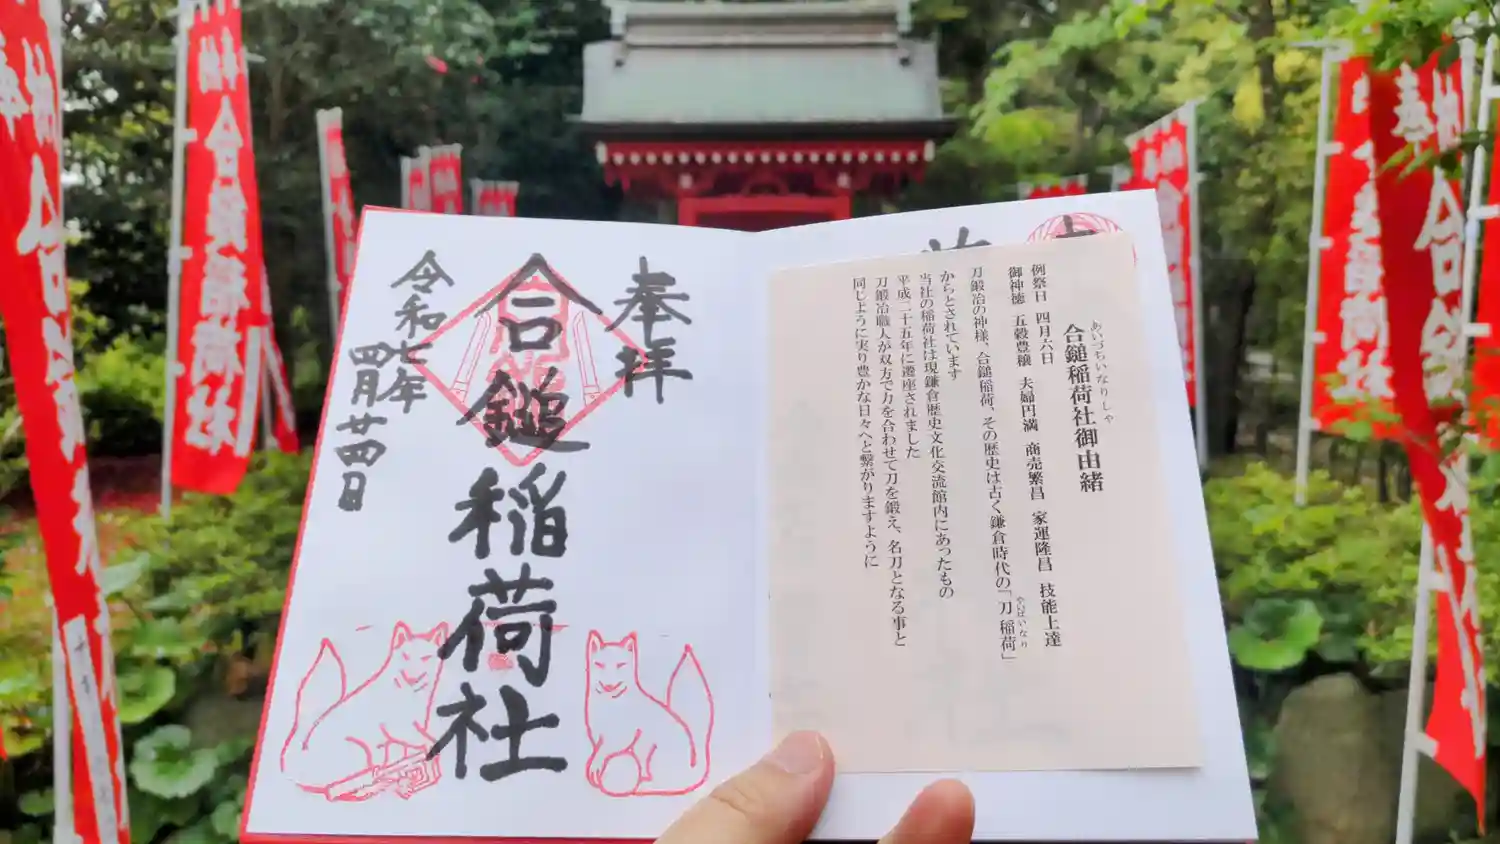 奉拝
合鎚稲荷社
令和七年
四月廿四日
あいづちいなりしゃ
合鎚稲荷社御由緒
例祭日 四月六日
御神徳 五穀豊穣 夫婦円満 商売繁昌 家運隆昌 技能上達
刀鍛冶の神様、合鎚稲荷、その歴史は古く鎌倉時代の「刀稲荷」
やいばいなり
からとされています
当社の稲荷社は現鎌倉歴史文化交流館内にあったもの
平成二十五年に遷座されました
刀鍛冶職人が双方で力を合わせて刀を鍛え、名刀となる事と
同じように実り豊かな日々へと繋がりますように
奉納 合鎚稲荷社
合鎚稲荷社